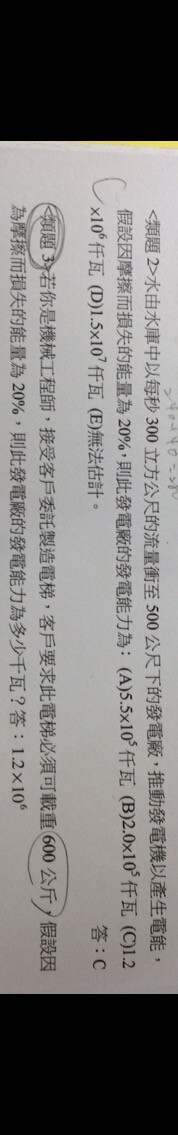 <類題 2>水由水庫中以每秒 300 立方公尺的流量衝至 500 公尺下的發電廠，推動發電機以產生電能，
假設因摩擦而損失的能量為 20%，則此發電廠的發電能力為：(A)5.5x10⁵仟瓦 (B)2.0x10⁵仟瓦 (C)1.2
x10⁶仟瓦 (D)1.5x10⁷仟瓦 (E)無法估計。
答：C
<類題 3>若你是機械工程師，接受客戶委託製造電梯，客戶要求此電梯必須可載重(600 公斤)，假設因
為摩擦而損失的能量為 20%，則此發電廠的發電能力為多少千瓦？答：1.2×10⁶